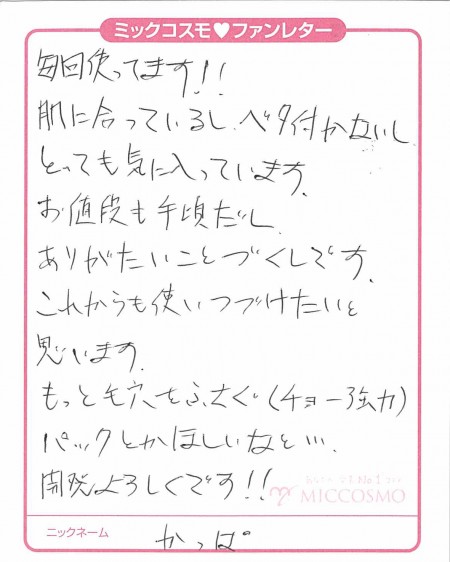 ミックコスモ♥ファンレター
毎回使ってます!!
肌に合っているし、ベタ付かないし
とっても気に入っています。
お値段も手頃だし、
ありがたいことづくしです。
これからも使いつづけたいと
思います。
もっと毛穴をふさぐ(チョー強力)
パックとかほしいなと…。
開発よろしくです!!
MICCOSMO
ニックネーム
かっぱ